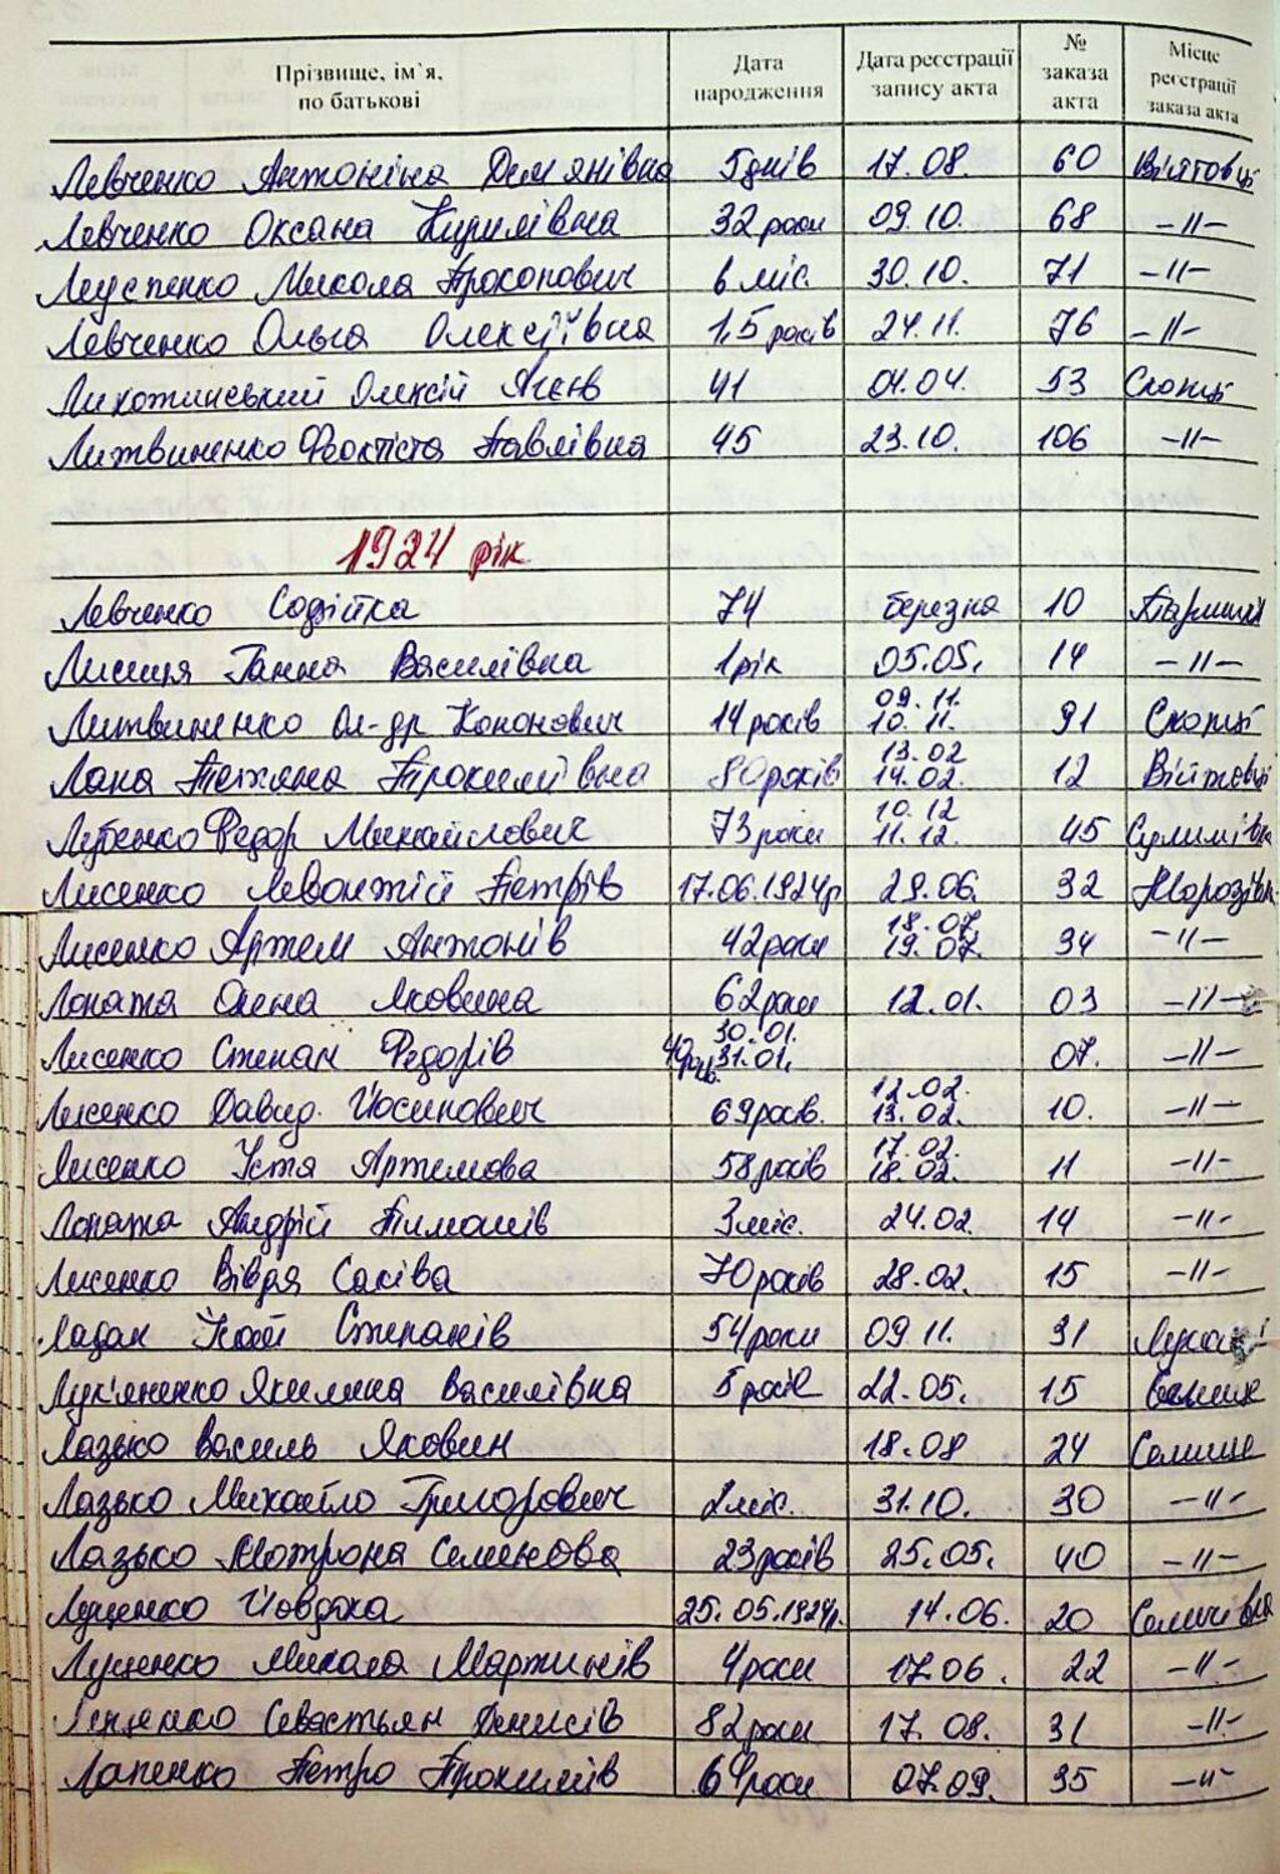 Прізвище, ім`я, по батькові Дата народження Дата реєстрації запису акта № заказа акта Місце реєстрації заказа акта
Левченко Антоніна Дем'янівна 5 днів 17.08. 60 Війтовці
Левченко Оксана Кирилівна 32 роки 09.10. 68 -//-
Микола Прокопович 6 міс. 30.10. 71 -//-
Левченко Ольга Олексіївна 1,5 років 24.11. 76 -//-
Олексій 41 04.04. 53 Скопці
Литвиненко Феоктіста Павлівна 45 23.10. 106 -//-
1924 рік
Левченко 74 березна 10
Лисиця Ганна Василівна 1 рік 05.05. 14 -//-
Литвиненко Ол-др Кононович 14 років 09.11. 10.11. 91 Скопці
Лапа Тетяна Трохимівна 80 років 13.02 14.02. 12 Війтовці
Лубенко Федор Михайлович 73 роки 10.12 11.12. 45 Сулимівка
Лисенко Левонтій Петрів 17.06.1924р 29.06. 32 Морозівка
Лисенко Артем Антонів 42 роки 18.07. 19.07. 34 -//-
Лопата Олена Яковина 62 роки 12.01. 03 -//-
Лисенко Степан Федорів 40 років. 30.01. 31.01. 07. -//-
Лисенко Давид. Йосипович 69 років. 12.02. 13.02. 10. -//-
Лисенко Устя Артемова 58 років 17.02. 18.02. 11 -//-
Лопата Андрій Тимошів 3 міс. 24.02. 14 -//-
Лисенко Вівдя Саківа 70 років 28.02. 15 -//-
Степанів 54 роки 09.11. 31
Лук'яненко Якилина Василівна 5 років 22.05. 15 Селище
Лазько Василь Яковин 18.08 24 Селище
Лазько Михайло Григорович 2 міс. 31.10. 30 -//-
Лазько Мотрона Семенова 23 років 25.05. 40 -//-
Луценко Йовдоха 25.05.1924р. 14.06. 20 Селичівка
Луценко Микола Мартинів 4 роки 17.06. 22 -//-
Севастьян Денисів 82 роки 17.08. 31 -//-
Лапенко Петро Трохимів 64 роки 07.09. 35 -//-